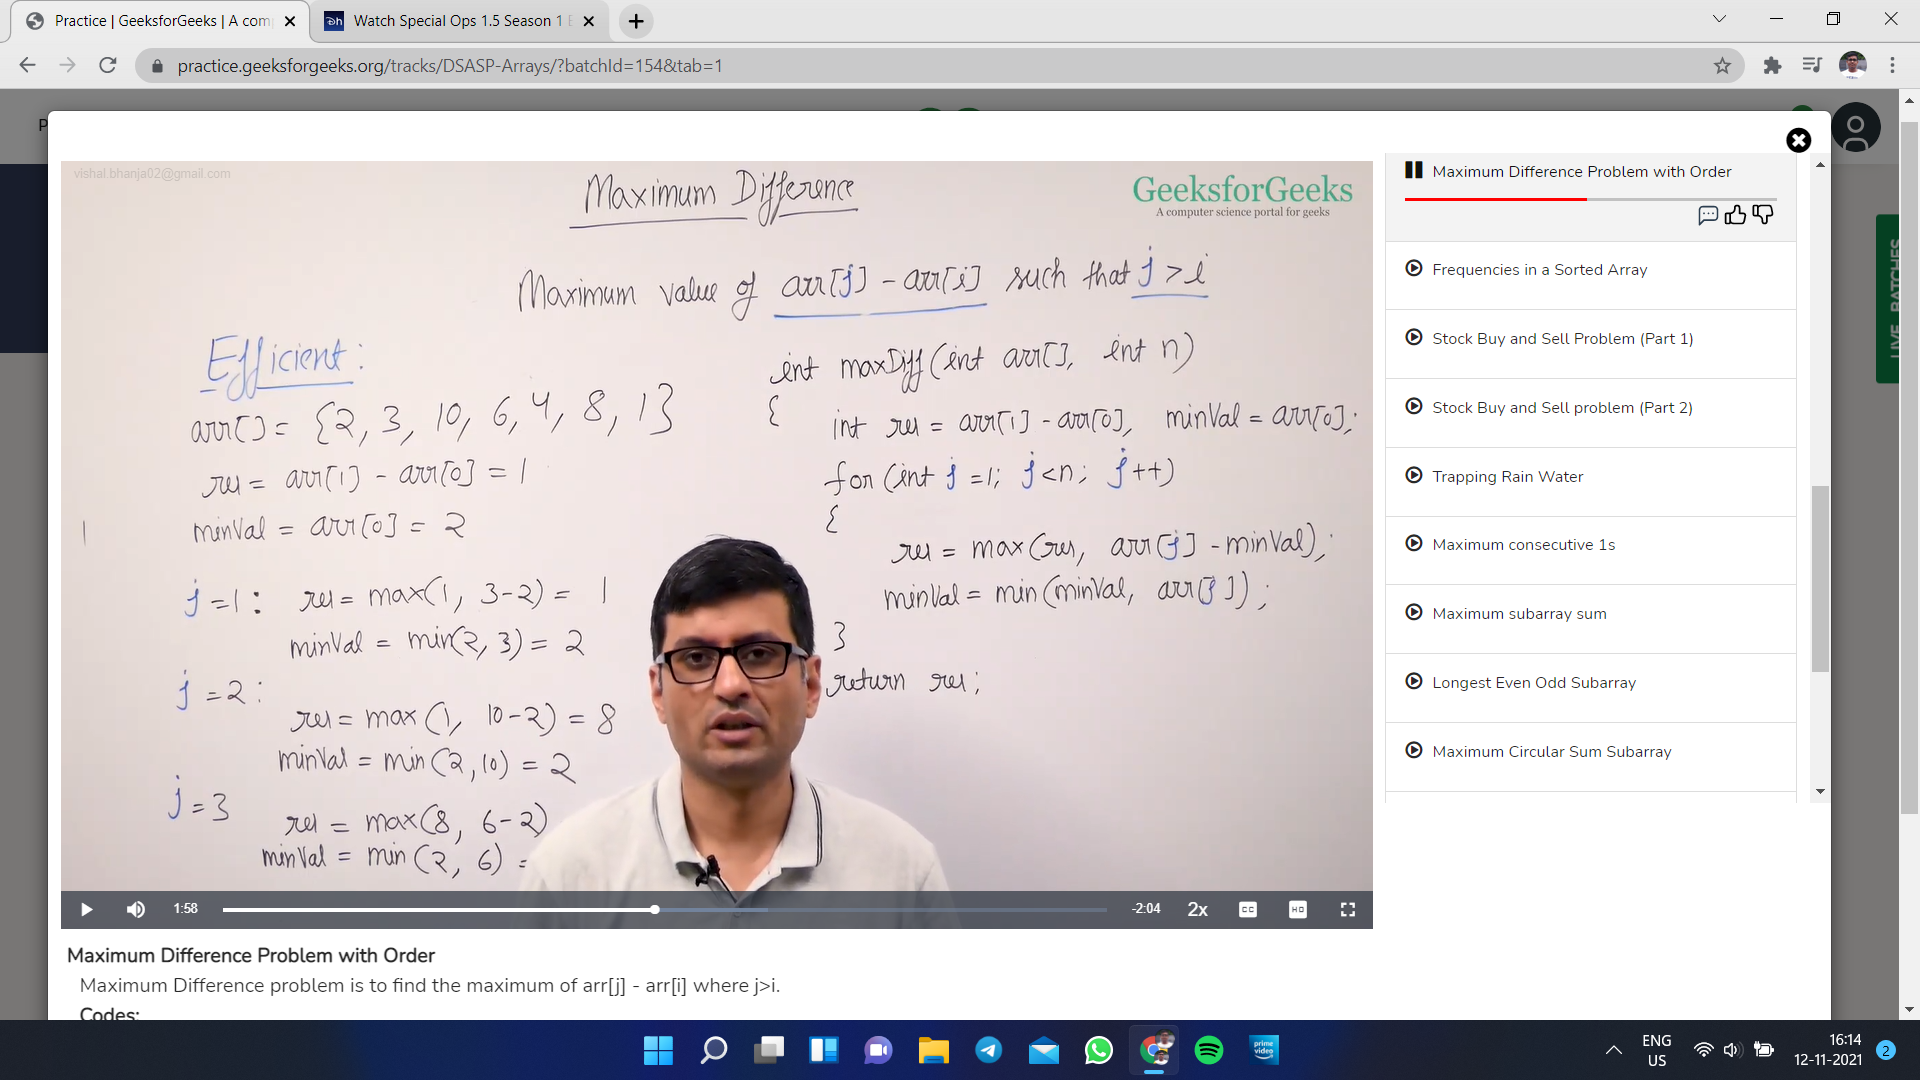 Practice | GeeksforGeeks | A com
Watch Special Ops 1.5 Season 1 E
practice.geeksforgeeks.org/tracks/DSASP-Arrays/?batchId=154&tab=1
P
vishal.bhanja02@gmail.com
Maximum Difference
GeeksforGeeks
A computer science portal for geeks
Maximum value of arr[j] - arr[i] such that j > i
Efficient :
arr[] = {2, 3, 10, 6, 4, 8, 1}
res = arr[1] - arr[0] = 1
minVal = arr[0] = 2
j = 1 : res = max(1, 3-2) = 1
minVal = min(2, 3) = 2
j = 2 :
res = max (1, 10-2) = 8
minVal = min(2, 10) = 2
j = 3
res = max(8, 6-2)
minVal = min (2, 6) =
int maxDiff(int arr[], int n)
{
int res = arr[1] - arr[0], minVal = arr[0];
for (int j = 1; j < n; j++)
{
res = max(res, arr[j] - minVal);
minVal = min(minVal, arr[j]);
}
return res;
1:58
-2:04
2x
CC
HD
Maximum Difference Problem with Order
Frequencies in a Sorted Array
Stock Buy and Sell Problem (Part 1)
Stock Buy and Sell problem (Part 2)
Trapping Rain Water
Maximum consecutive 1s
Maximum subarray sum
Longest Even Odd Subarray
Maximum Circular Sum Subarray
LIVE BATCHES
Maximum Difference Problem with Order
Maximum Difference problem is to find the maximum of arr[j] - arr[i] where j>i.
Codes:
prime video
ENG
US
16:14
12-11-2021
2